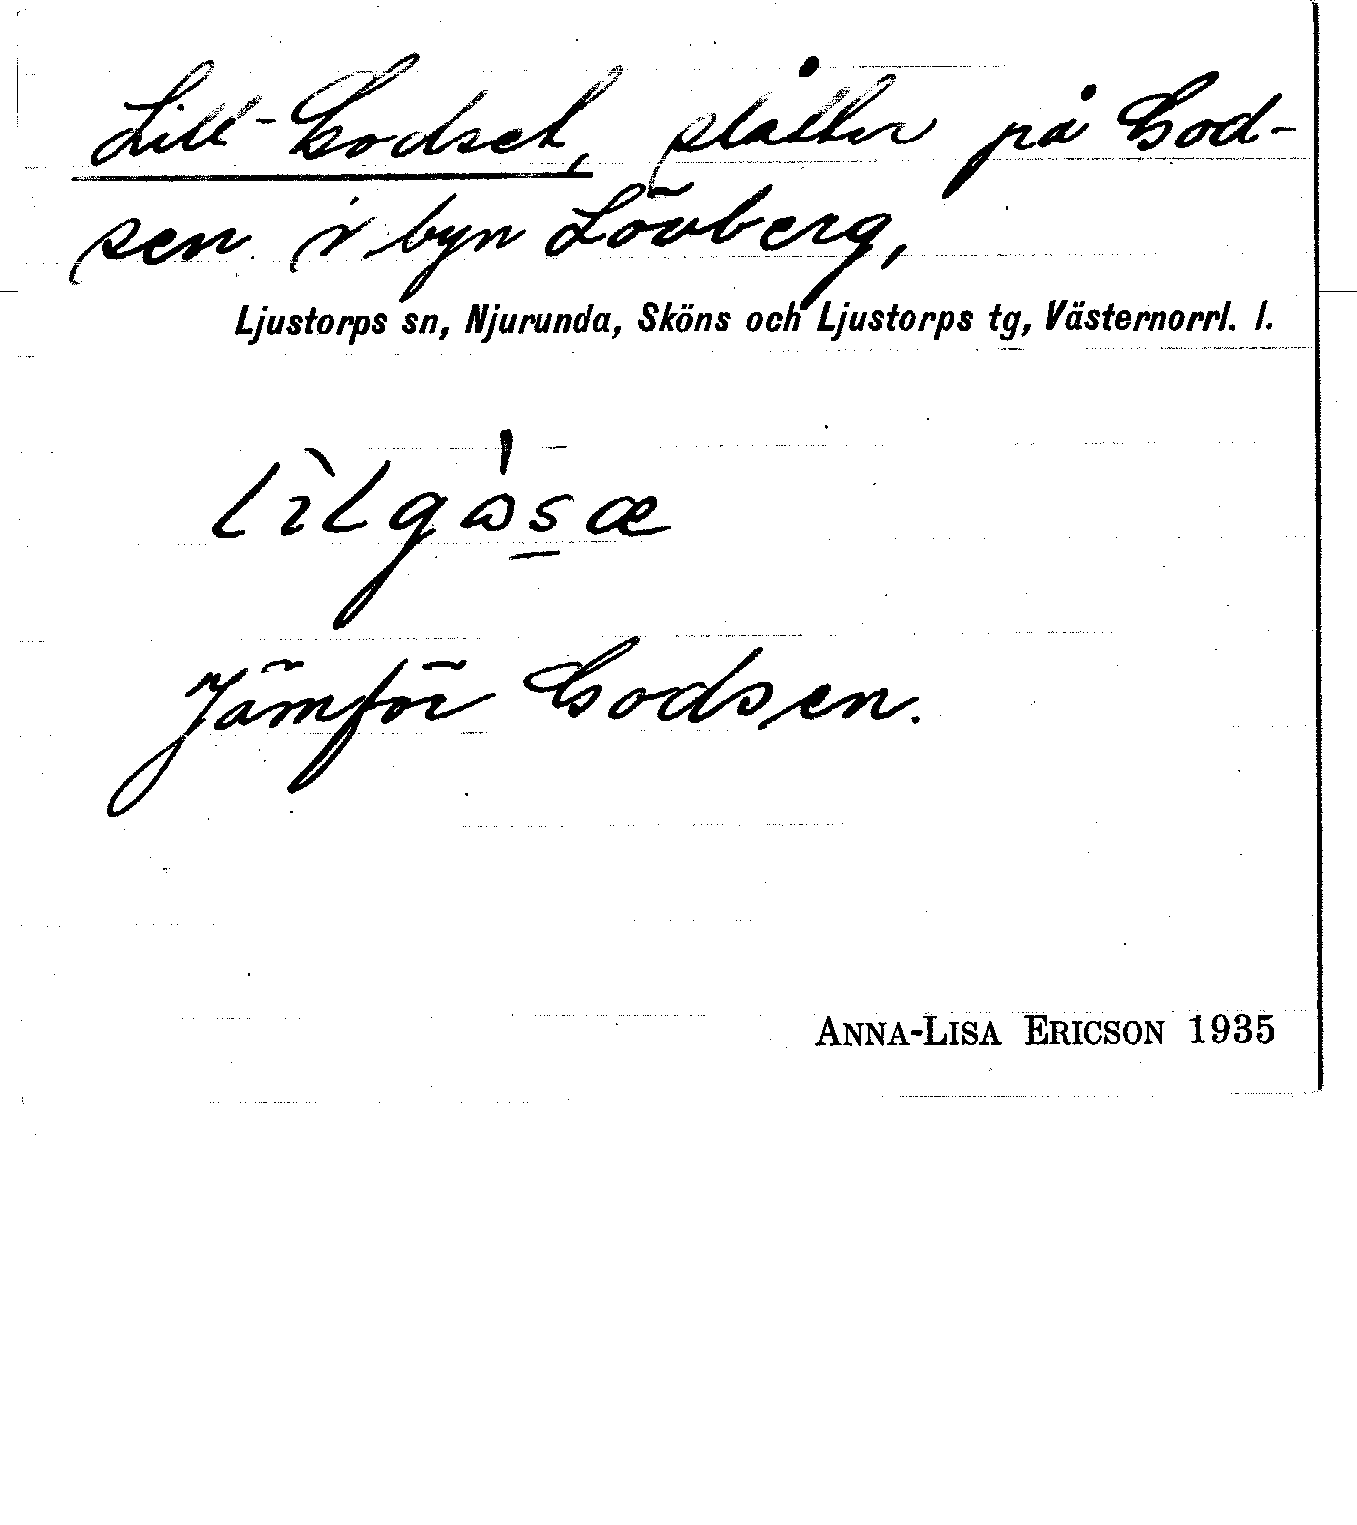 Lill-Godset, slåtter på God-
sen i byn Lövberg,
Ljustorps sn, Njurunda, Sköns och Ljustorps tg, Västernorrl. l.
Jämför Godsen.
ANNA-LISA ERICSON 1935